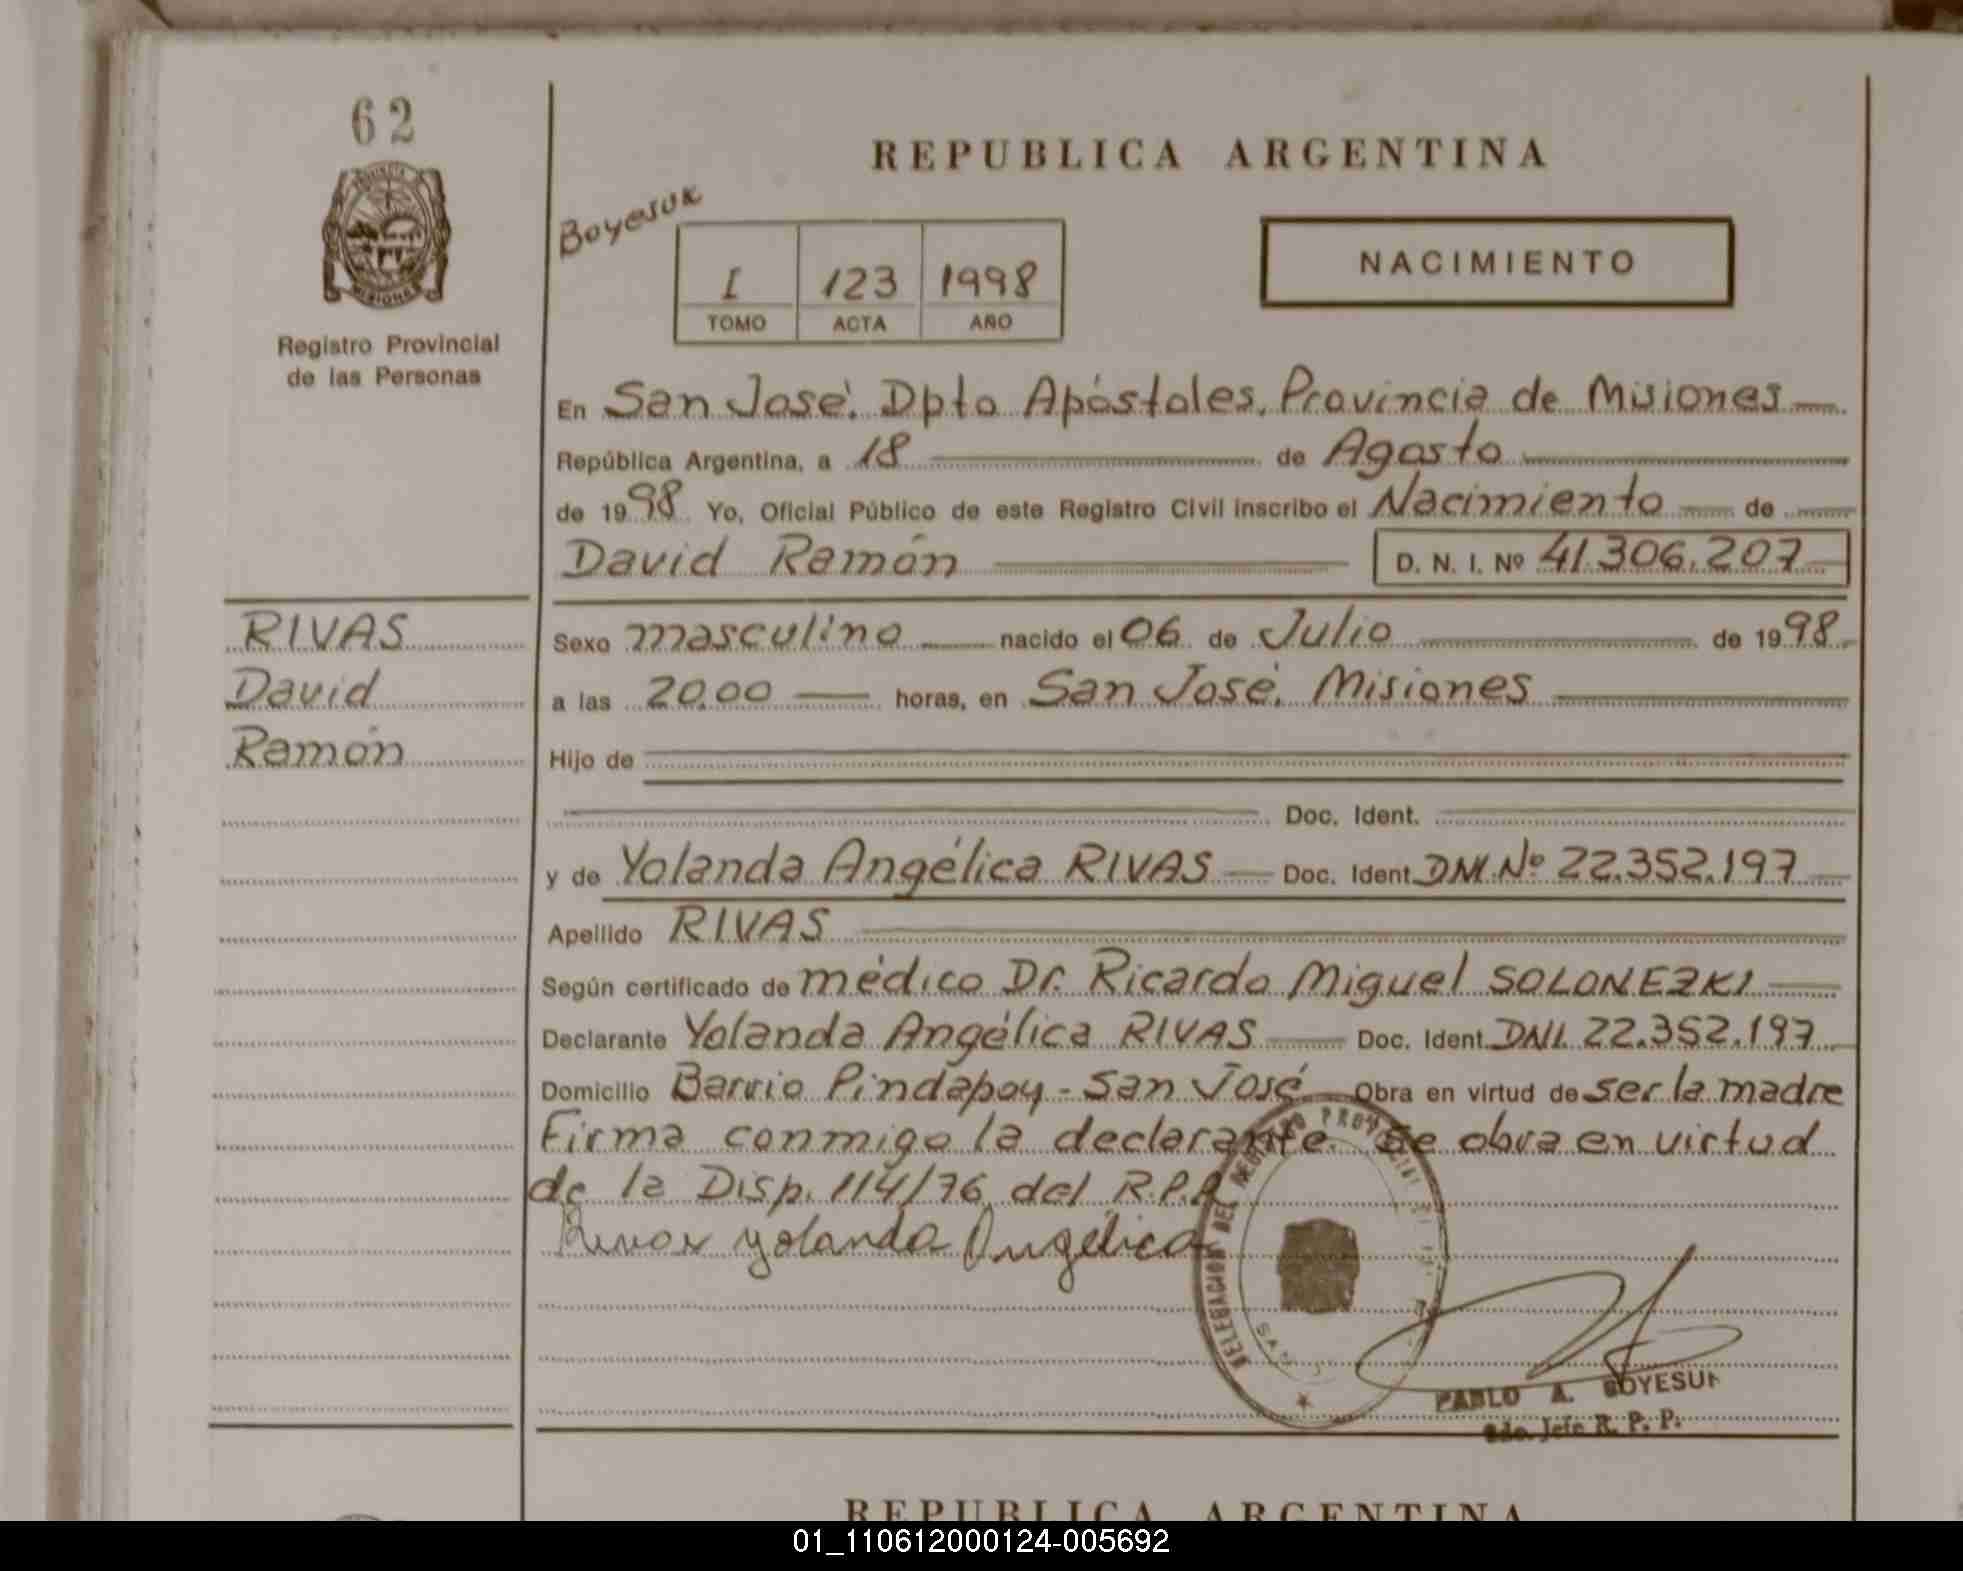 62
REPUBLICA ARGENTINA
Boyesuk
NACIMIENTO
I 123 1998
TOMO ACTA AÑO
MISIONES
Registro Provincial
de las Personas
En San José. Dpto Apóstoles, Provincia de Misiones
República Argentina, a 18 de Agosto
de 1998 Yo, Oficial Público de este Registro Civil inscribo el Nacimiento de
David Ramón D. N. I. Nº 41.306.207
RIVAS
David
Ramón
Sexo masculino nacido el 06 de Julio de 1998
a las 20,00 horas, en San José, Misiones
Hijo de
Doc. Ident.
y de Yolanda Angélica RIVAS Doc. Ident. DNI.Nº 22.352.197
Apellido RIVAS
Según certificado de médico Dr. Ricardo Miguel SOLONEZKI
Declarante Yolanda Angélica RIVAS Doc. Ident. DNI. 22.352.197
Domicilio Barrio Pindapoy - San José Obra en virtud de ser la madre
Firma conmigo la declarante. Se obra en virtud
de la Disp. 114/76 del R.P.P
Rivas Yolanda Angélica
DELEGACION DEL REGISTRO PROVINCIAL
SAN
PABLO A. BOYESUK
Sdo. Jefe R. P. P.
REPUBLICA ARGENTINA
01_110612000124-005692